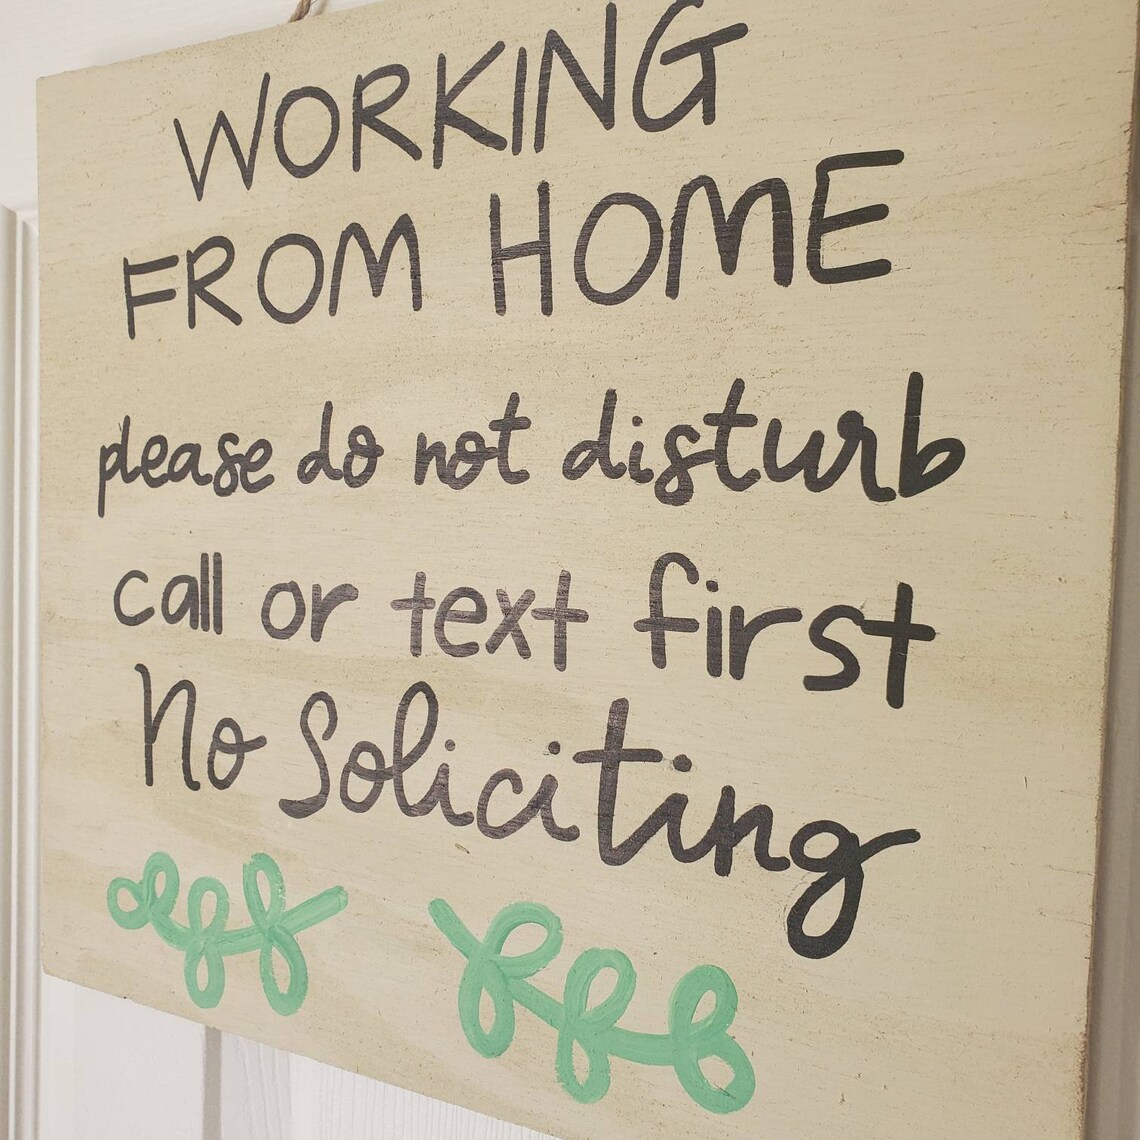 WORKING
FROM HOME
please do not disturb
call or text first
No Soliciting